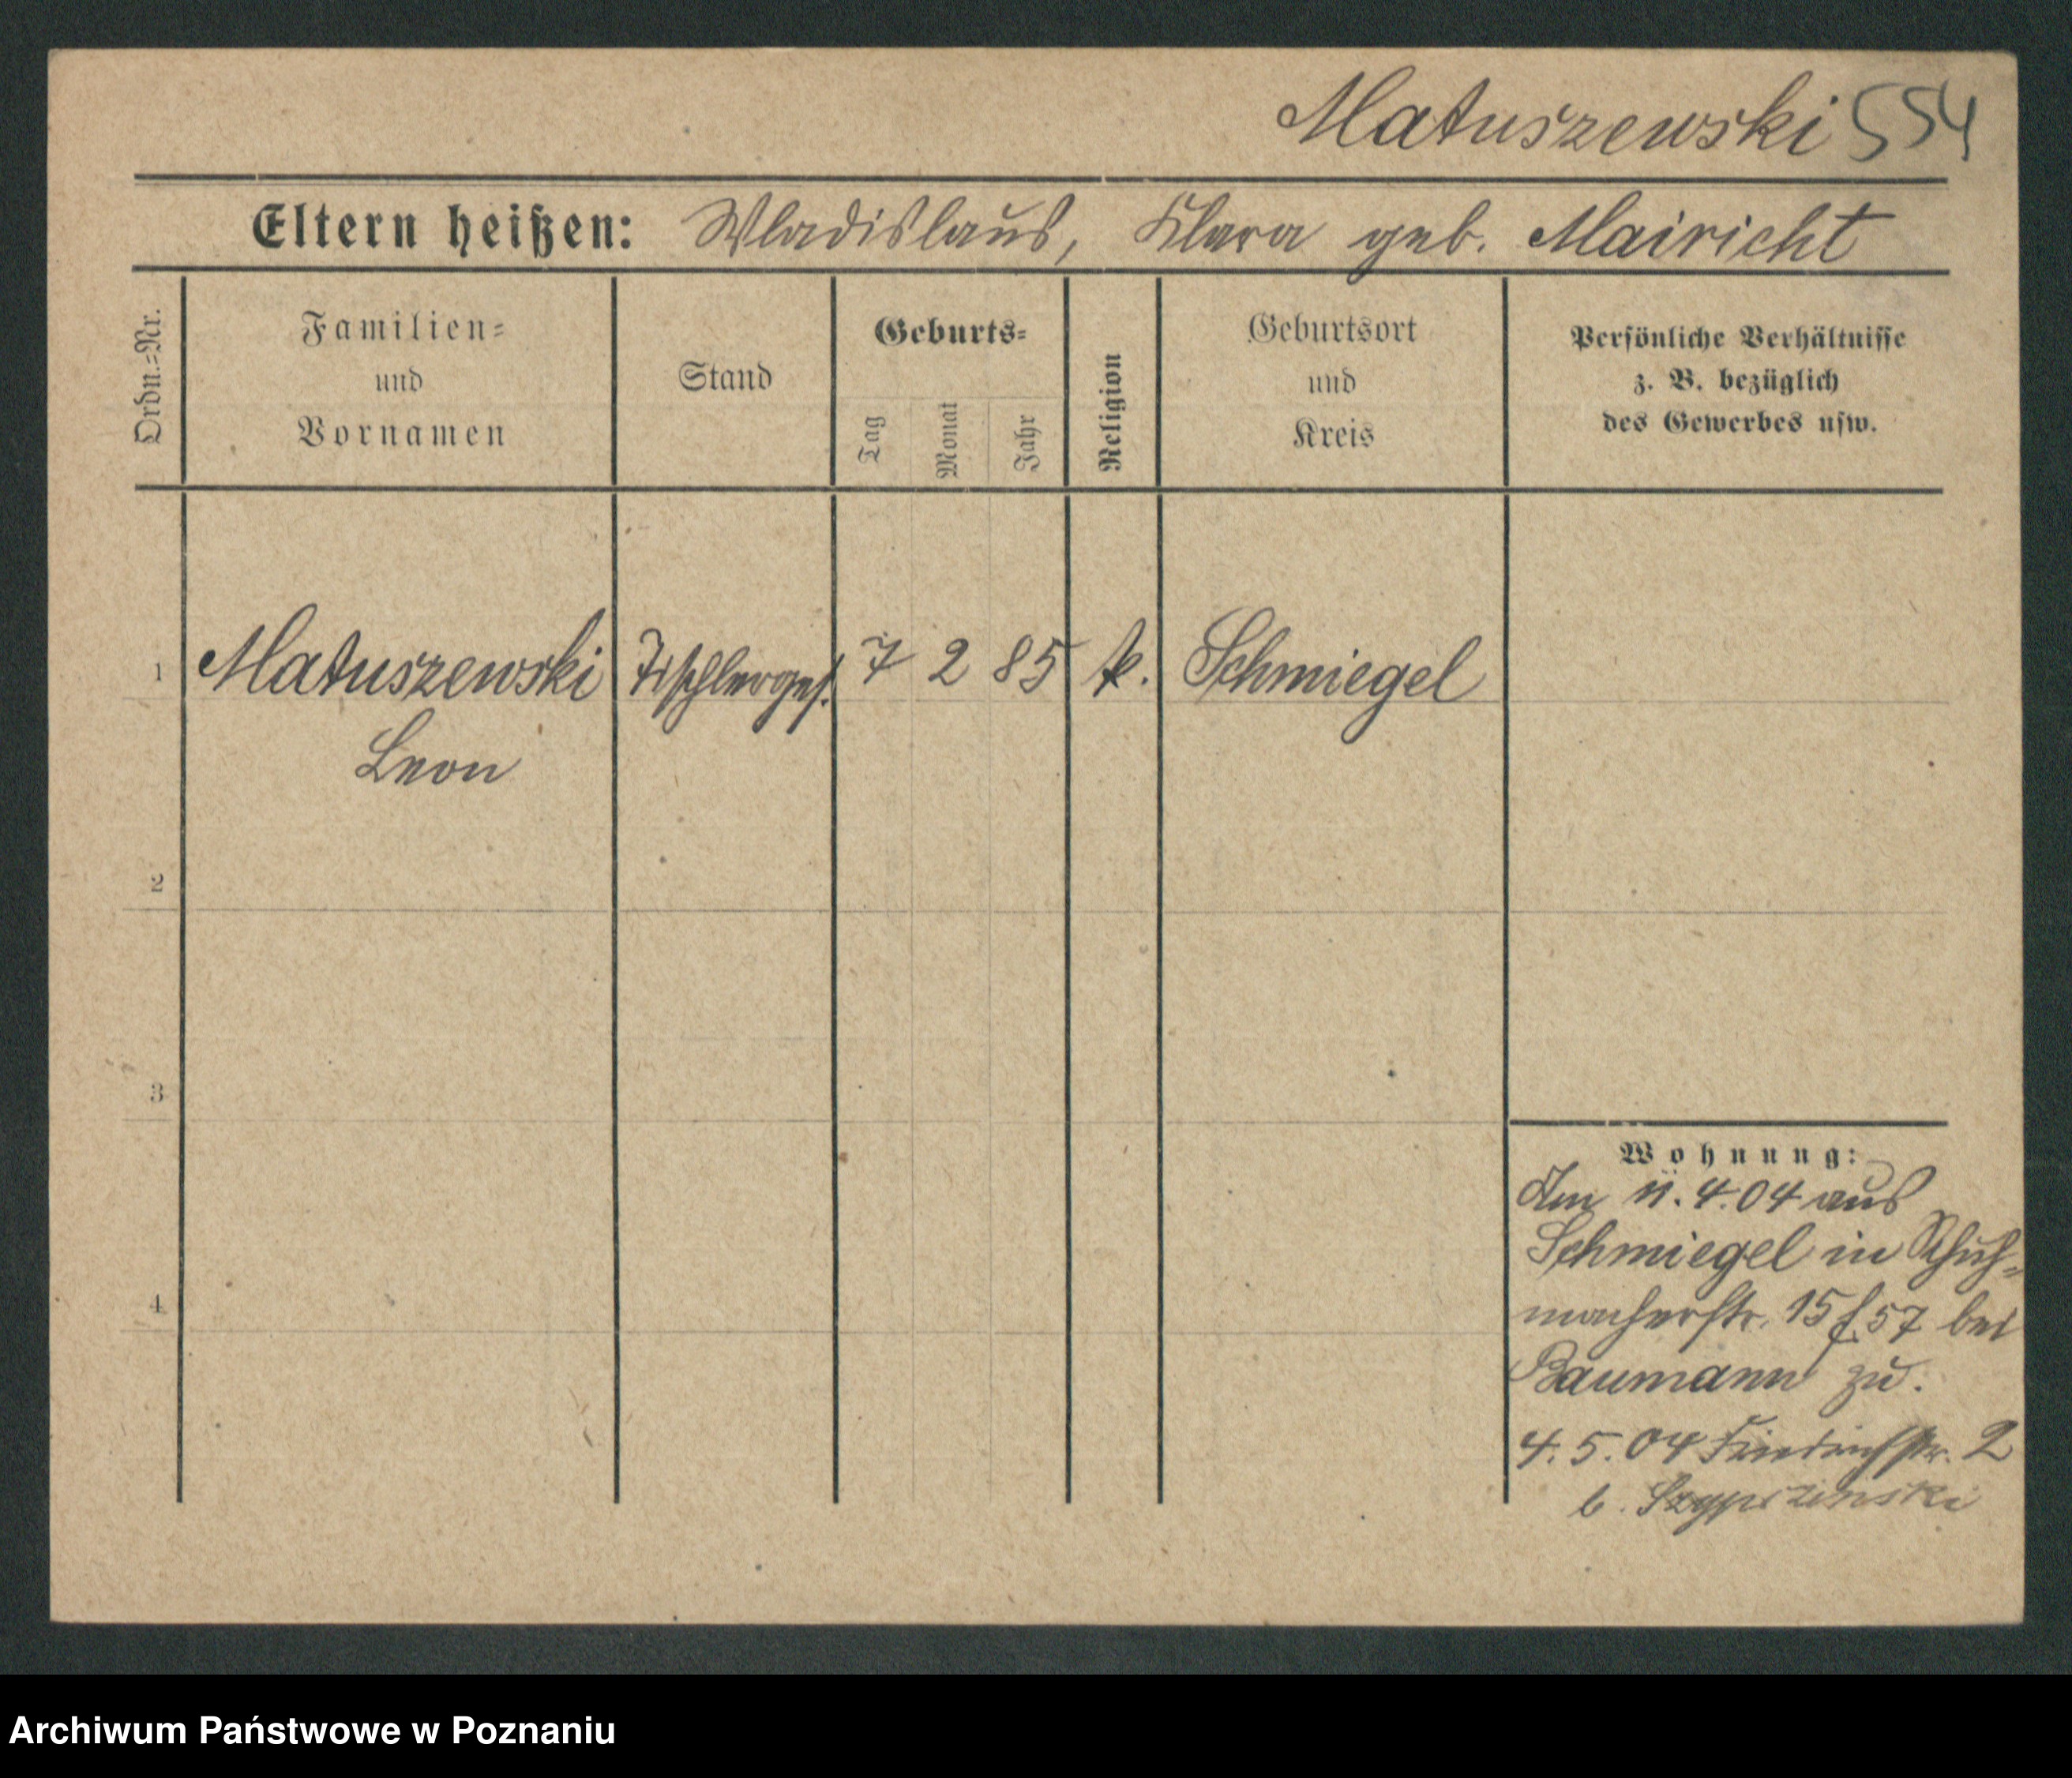 Matuszewski 554
Eltern heißen: Wladislaus, Klara geb. Mairicht
Ordn.=Nr.
Familien=
und
Vornamen
Stand
Geburts=
Tag
Monat
Jahr
Religion
Geburtsort
und
Kreis
Persönliche Verhältnisse
z. B. bezüglich
des Gewerbes usw.
1 Matuszewski Tischlerges. 7 2 85 k. Schmiegel
Leon
2
3
4
Wohnung:
Am 11.4.04 aus
Schmiegel in Schuh=
macherstr. 15 f. 57 bei
Baumann zu.
4.5.04 Friedrichstr. 2
b.
Archiwum Państwowe w Poznaniu